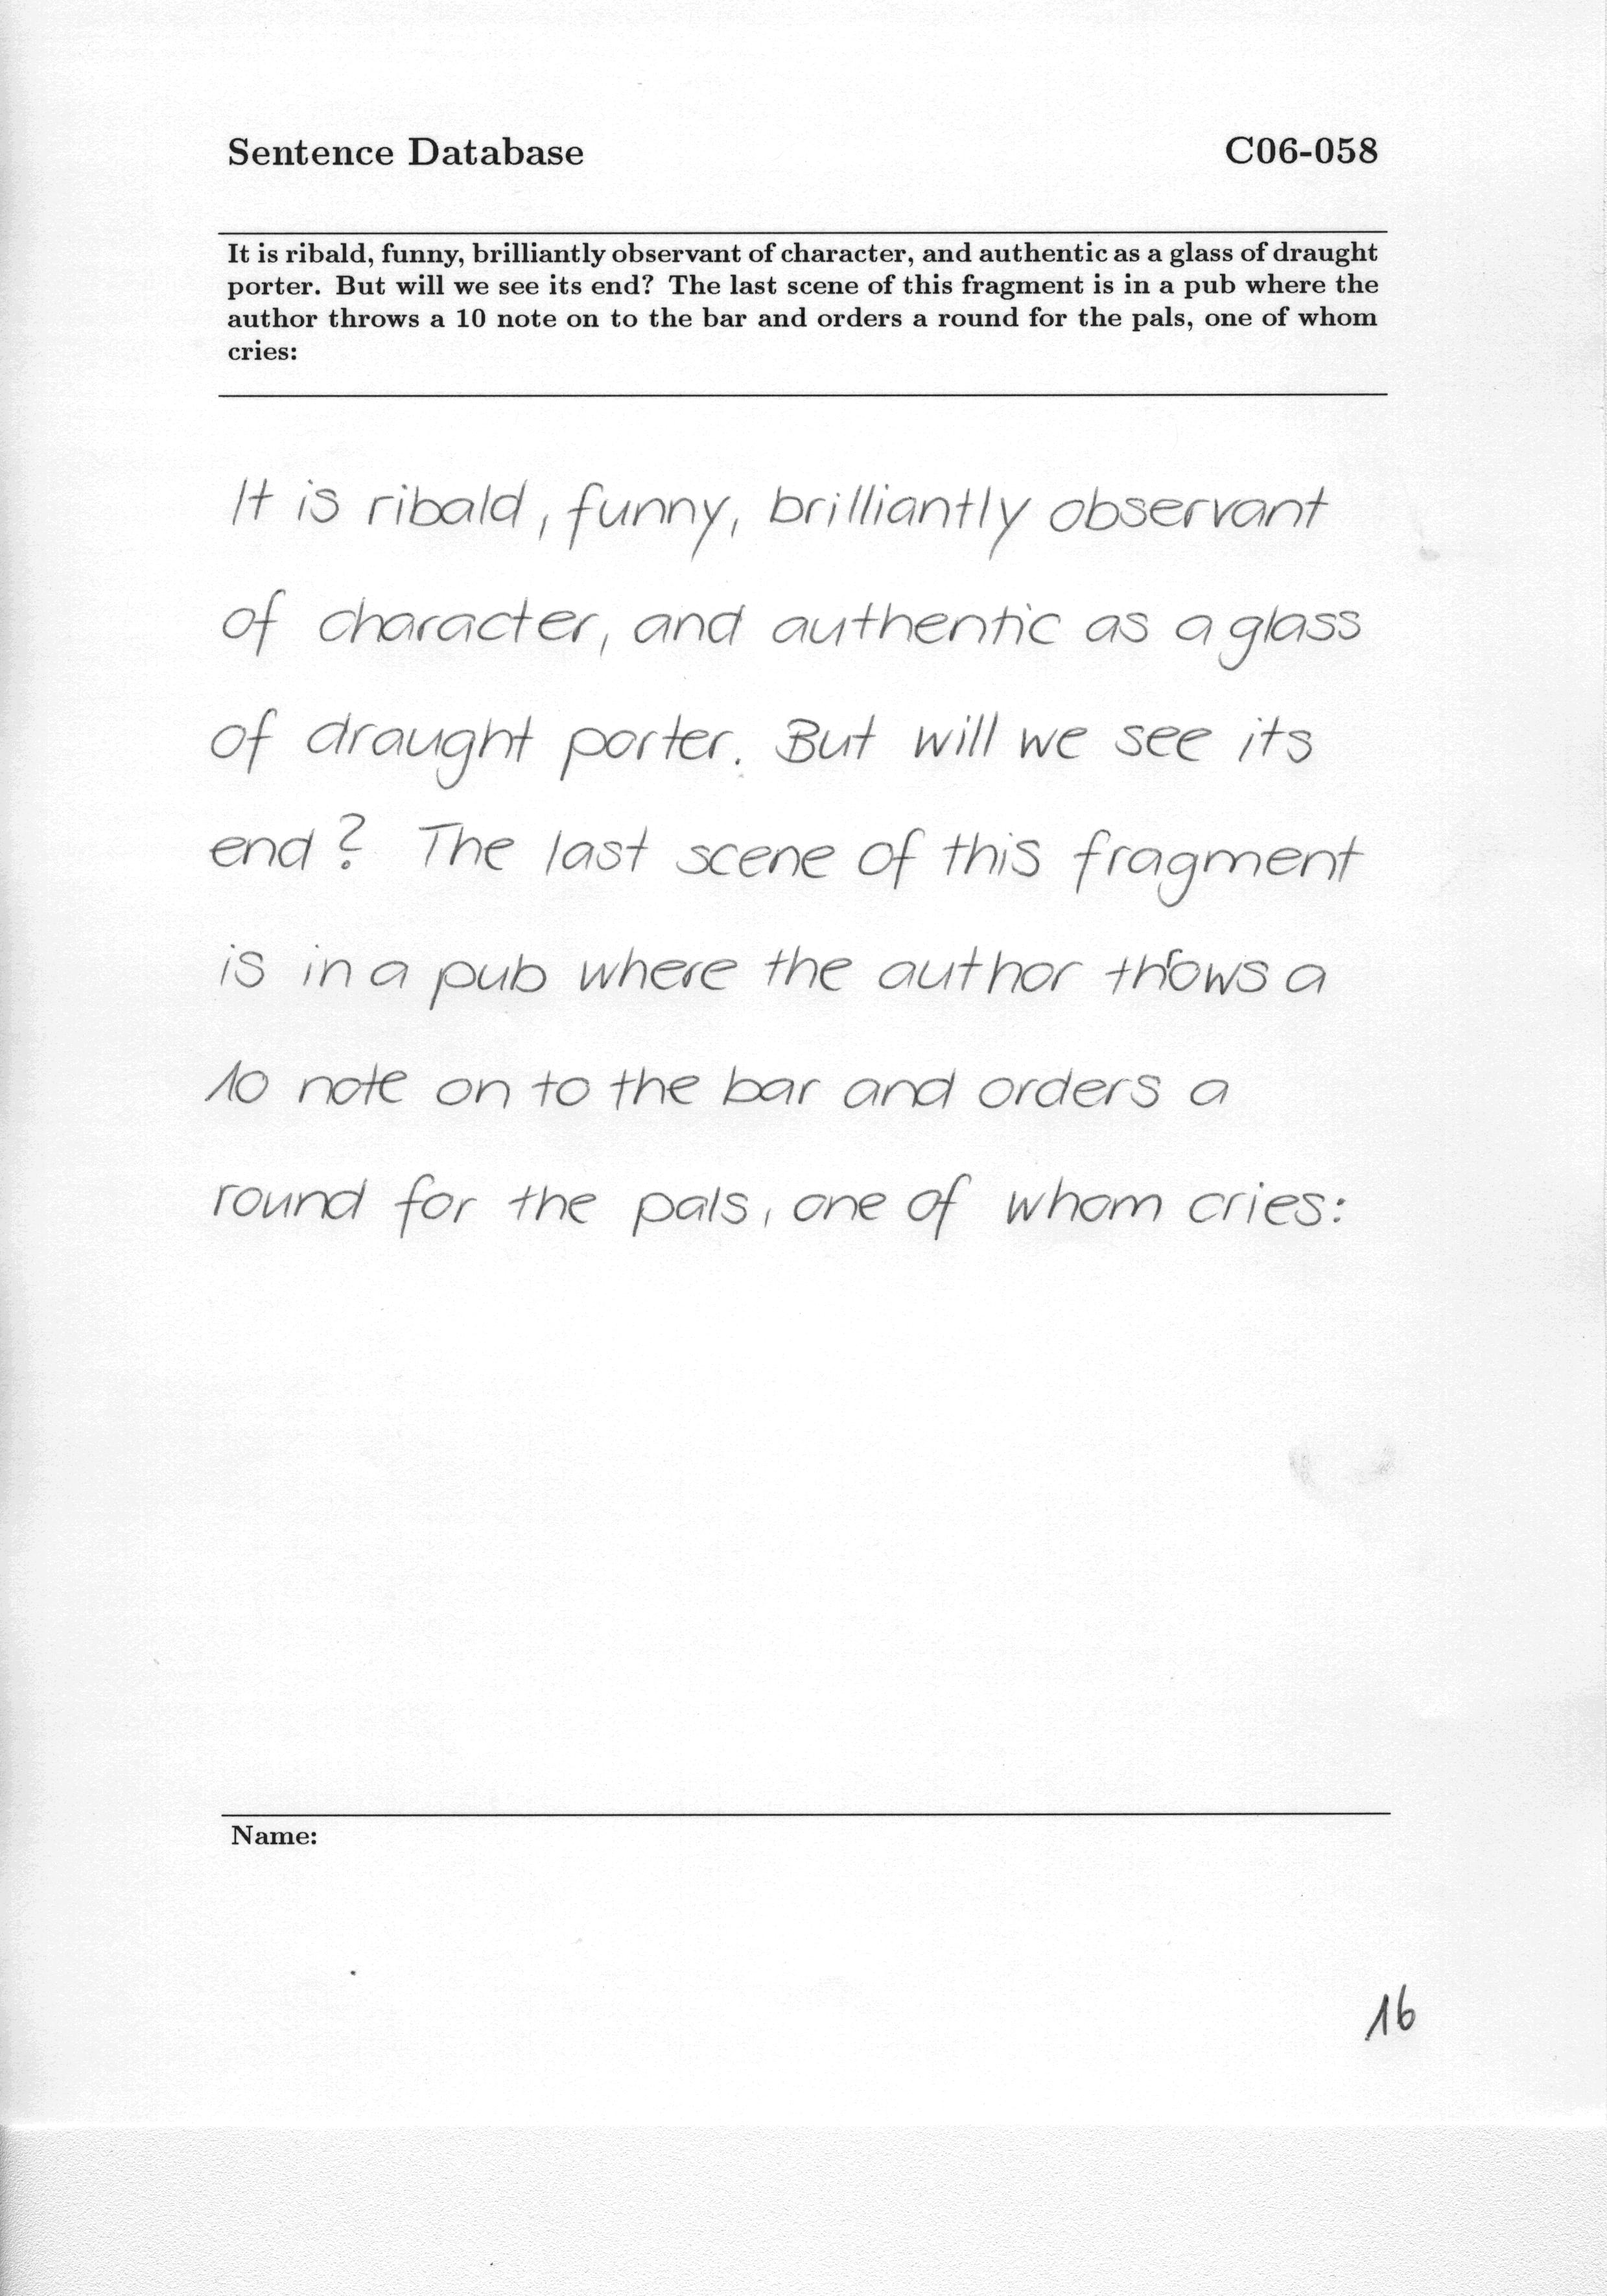 Sentence Database C06-058
It is ribald, funny, brilliantly observant of character, and authentic as a glass of draught
porter. But will we see its end? The last scene of this fragment is in a pub where the
author throws a 10 note on to the bar and orders a round for the pals, one of whom
cries:
It is ribald, funny, brilliantly observant
of character, and authentic as a glass
of draught porter. But will we see its
end? The last scene of this fragment
is in a pub where the author throws a
10 note on to the bar and orders a
round for the pals, one of whom cries:
Name:
16